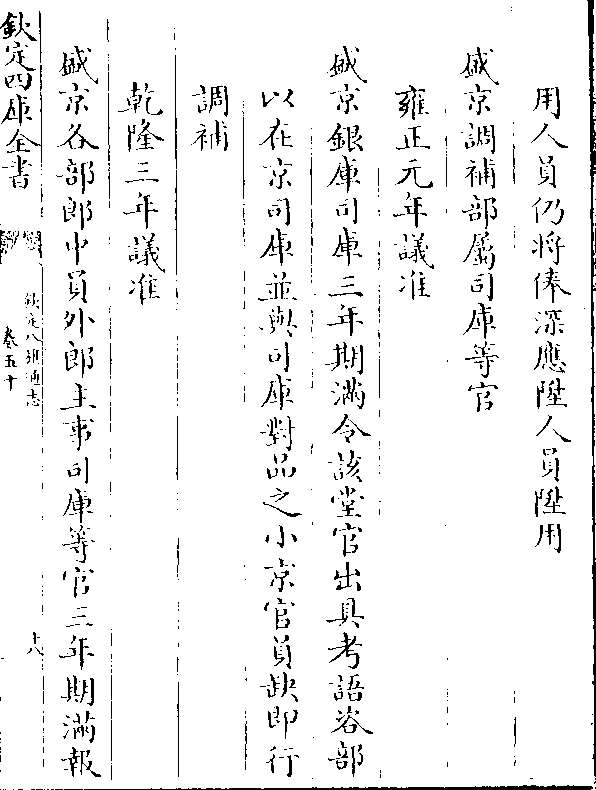 用人員仍將俸深應陞人員陞用
盛京調補部屬司庫等官
雍正元年議准
盛京銀庫司庫三年期滿令該堂官出具考語咨部
以在京司庫並與司庫對品之小京官員缺即行
調補
乾隆三年議准
盛京各部郎中員外郎主事司庫等官三年期滿報
欽定四庫全書
欽定八旗通志
卷五十
十八